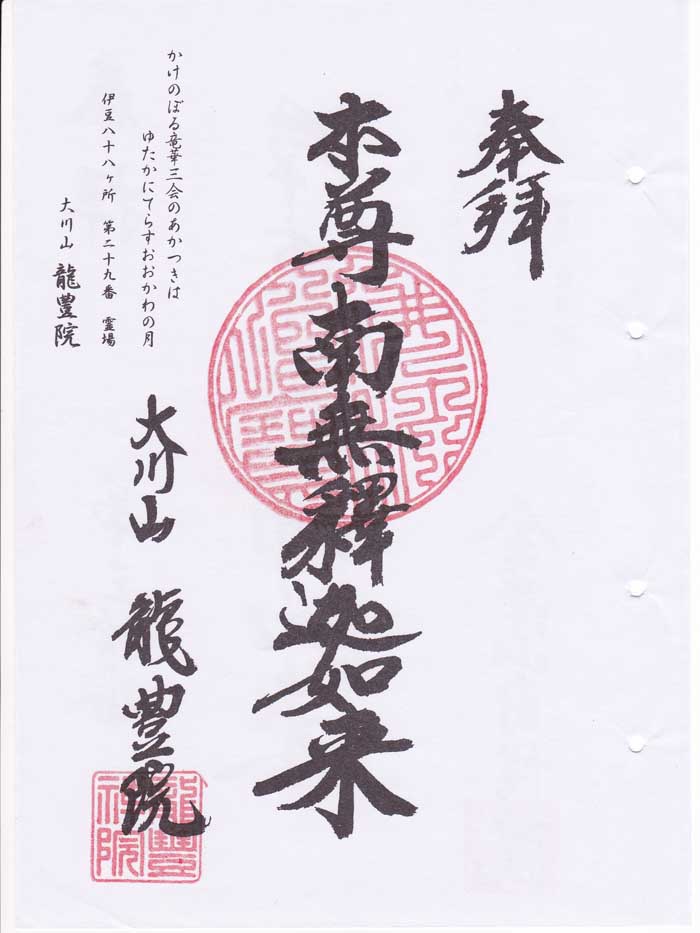 奉拝
本尊 南無釋迦如来
大川山 龍豊院
かけのぼる竜華三会のあかつきは
ゆたかにてらすおおかわの月
伊豆八十八ヶ所 第二十九番 霊場
大川山 龍豊院
龍豊
禅院